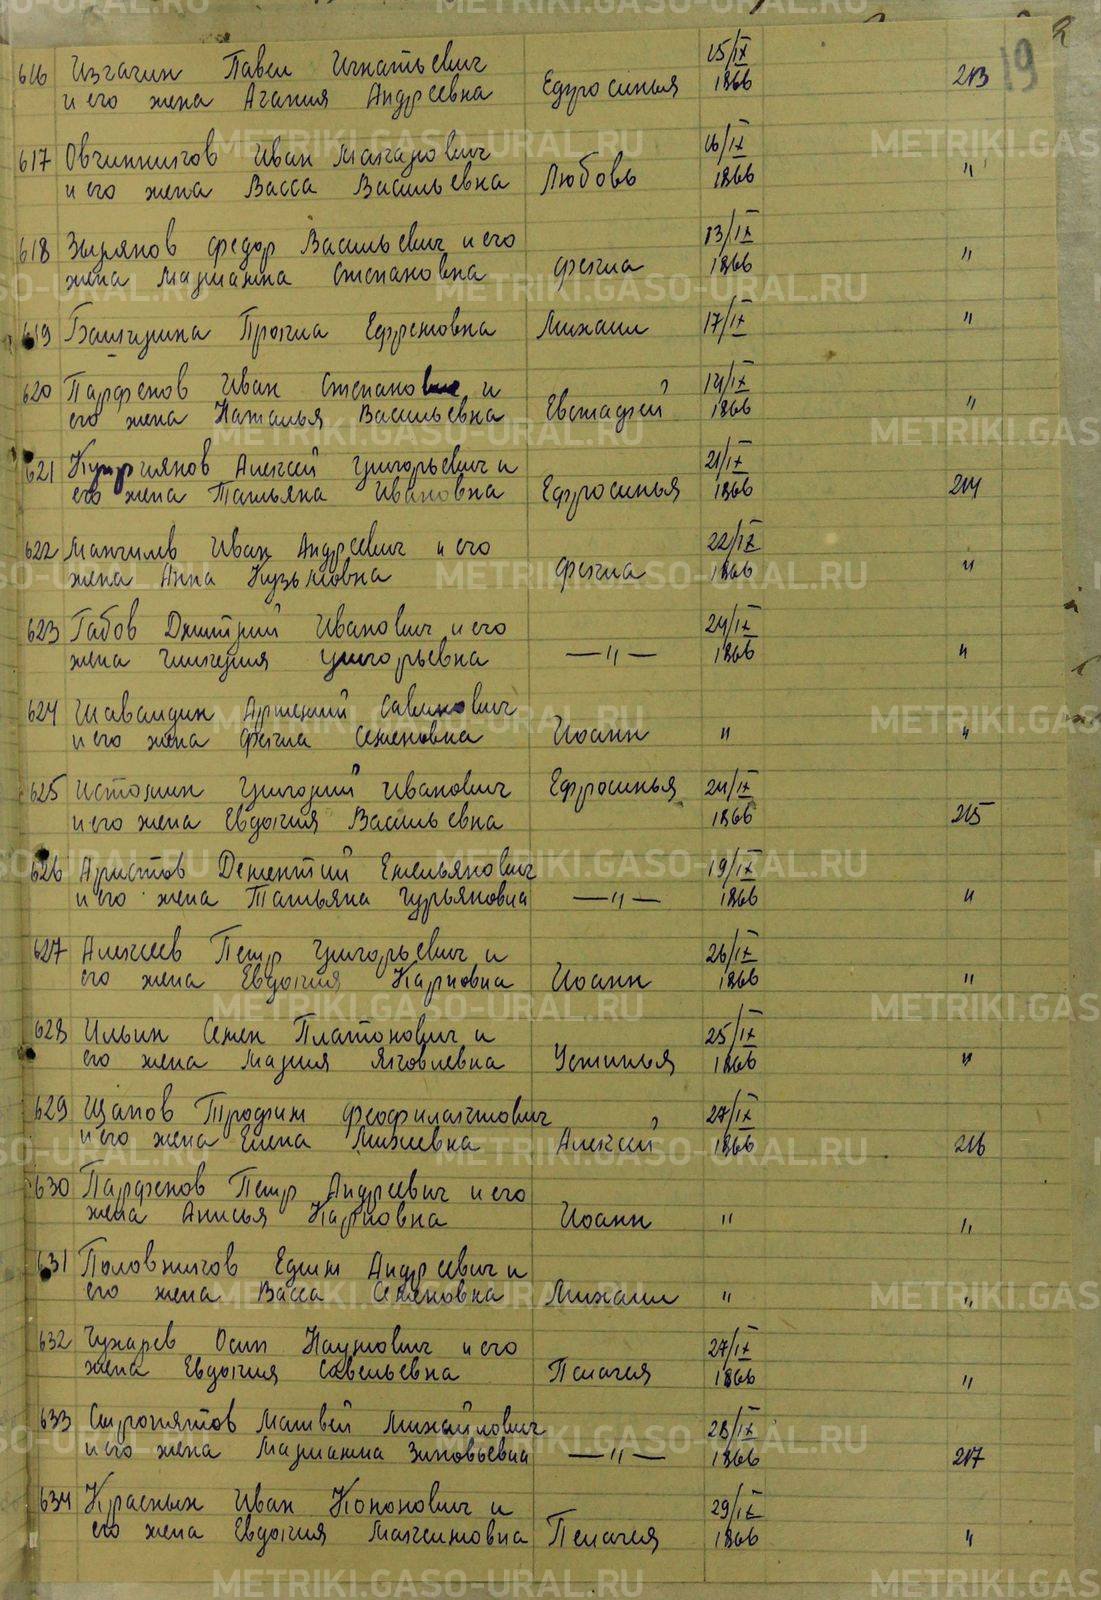 19
616 Изгагин Павел Игнатьевич 15/IX
и его жена Агапия Андреевна Едуросинья 1866 213
617 Овчинников Иван Макарович 16/IX
и его жена Васса Васильевна Любовь 1866 "
618 Зырянов Федор Васильевич и его 13/IX
жена Марианна Степановна Фекла 1866 "
619 Прокла Ефремовна Михаил 17/IX "
620 Парфенов Иван Степанович и 14/IX
его жена Наталья Васильевна Евстафий 1866 "
621 Куприянов Алексей Григорьевич и 21/IX
его жена Татьяна Ивановна Ефросинья 1866 214
622 Иван Андреевич и его 22/IX
жена Анна Кузьмовна Фекла 1866 "
623 Габов Дмитрий Иванович и его 24/IX
жена Гликерия Григорьевна —"— 1866 "
624 Шавандин Савинович
и его жена Фекла Семеновна Иоанн " "
625 Истомин Григорий Иванович Ефросинья 24/IX
и его жена Евдокия Васильевна 1866 215
626 Аристов Дементий Емельянович 19/IX
и его жена Татьяна Гурьяновна —"— 1866 "
627 Алексеев Петр Григорьевич и 26/IX
его жена Евдокия Карповна Иоанн 1866 "
628 Ильин Семен Платонович и 25/IX
его жена Мария Яковлевна Устинья 1866 "
629 Щапов Трофим Феофилактович 27/IX
и его жена Елена Алексей 1866 216
630 Парфенов Петр Андреевич и его
жена Анисья Карповна Иоанн " "
631 Половников Ефим Андреевич и
его жена Васса Семеновна Михаил " "
632 Чухарев Осип Наумович и его 27/IX
жена Евдокия Савельевна Пелагея 1866 "
633 Сыропятов Матвей Михайлович 28/IX
и его жена Марианна Зиновьевна —"— 1866 217
634 Красных Иван Кононович и 29/IX
его жена Евдокия Максимовна Пелагея 1866 "
METRIKI.GASO-URAL.RU